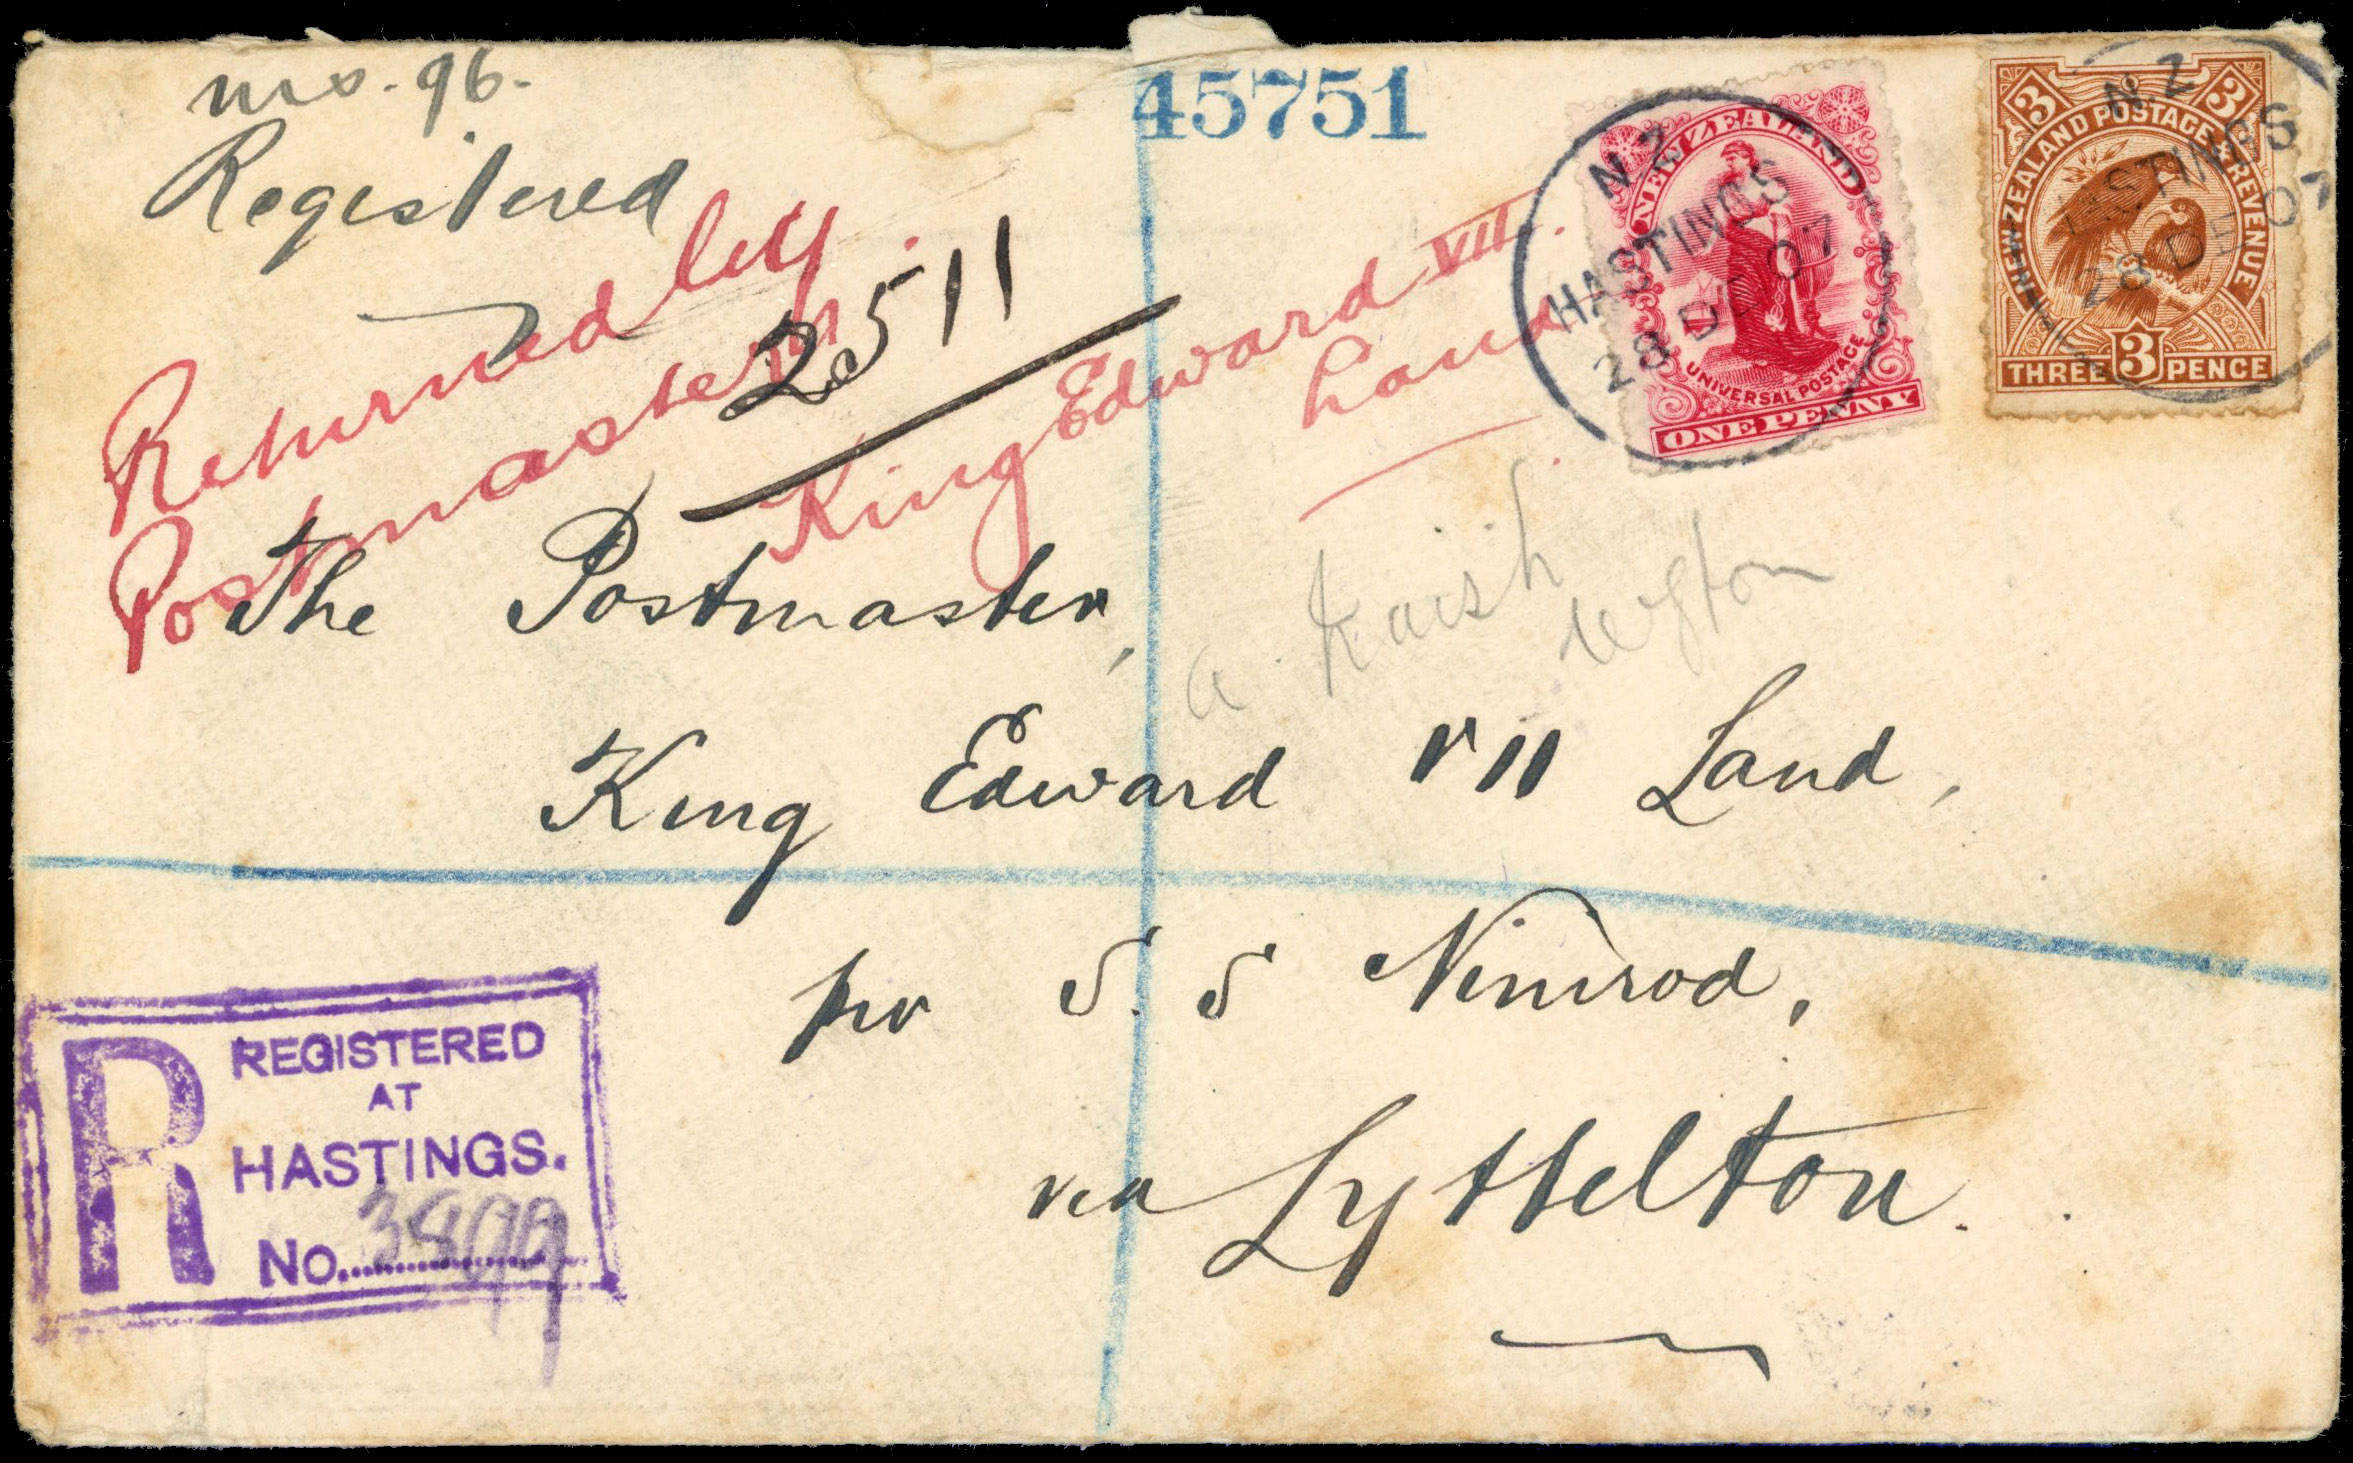 96.
Registered
45751
Returned by
Postmaster
King Edward VII.
Land
2511
NEW ZEALAND
UNIVERSAL POSTAGE
ONE PENNY
N Z
HASTINGS
28 DE 07
3 3
NEW ZEALAND POSTAGE & REVENUE
THREE 3 PENCE
N Z
HASTINGS
28 DE 07
The Postmaster,
King Edward VII Land,
per S.S Nimrod,
via Lyttelton.
R
REGISTERED
AT
HASTINGS.
No. 3899